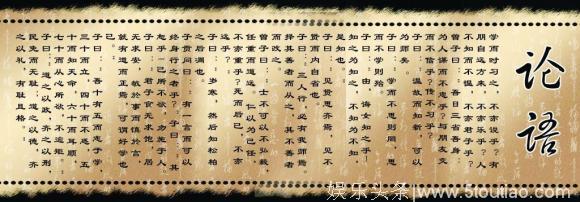 论语
学而时习之，不亦说乎？有
朋自远方来，不亦乐乎？人
不知而不愠，不亦君子乎？
曾子曰：吾日三省吾身：
为人谋而不忠乎？与朋友交
而不信乎？传不习乎？
子曰：温故而知新，可以
为师矣。
子曰：学而不思则罔，思
而不学则殆。
子曰：由，诲女知之乎！
知之为知之，不知为不知，
是知也。
子曰：见贤思齐焉，见不
贤而内自省也。
子曰：三人行，必有我师焉。
择其善者而从之，其不善者
而改之。
曾子曰：士不可以不弘毅，
任重而道远。仁以为己任，
不亦重乎？死而后已，不亦
远乎？
子曰：岁寒，然后知松柏
之后凋也。
子贡问曰：有一言而可以
终身行之者乎？子曰：其
恕乎！己所不欲，勿施于人。
子曰：君子食无求饱，居
无求安，敏于事而慎于言，
就有道而正焉，可谓好学也
已。
子曰：吾十有五而志于学，
三十而立，四十而不惑，五
十而知天命，六十而耳顺，
七十而从心所欲，不逾矩。
子曰：道之以政，齐之以刑，
民免而无耻，道之以德，齐
之以礼，有耻且格。
娱乐头条/www.5touliao.com